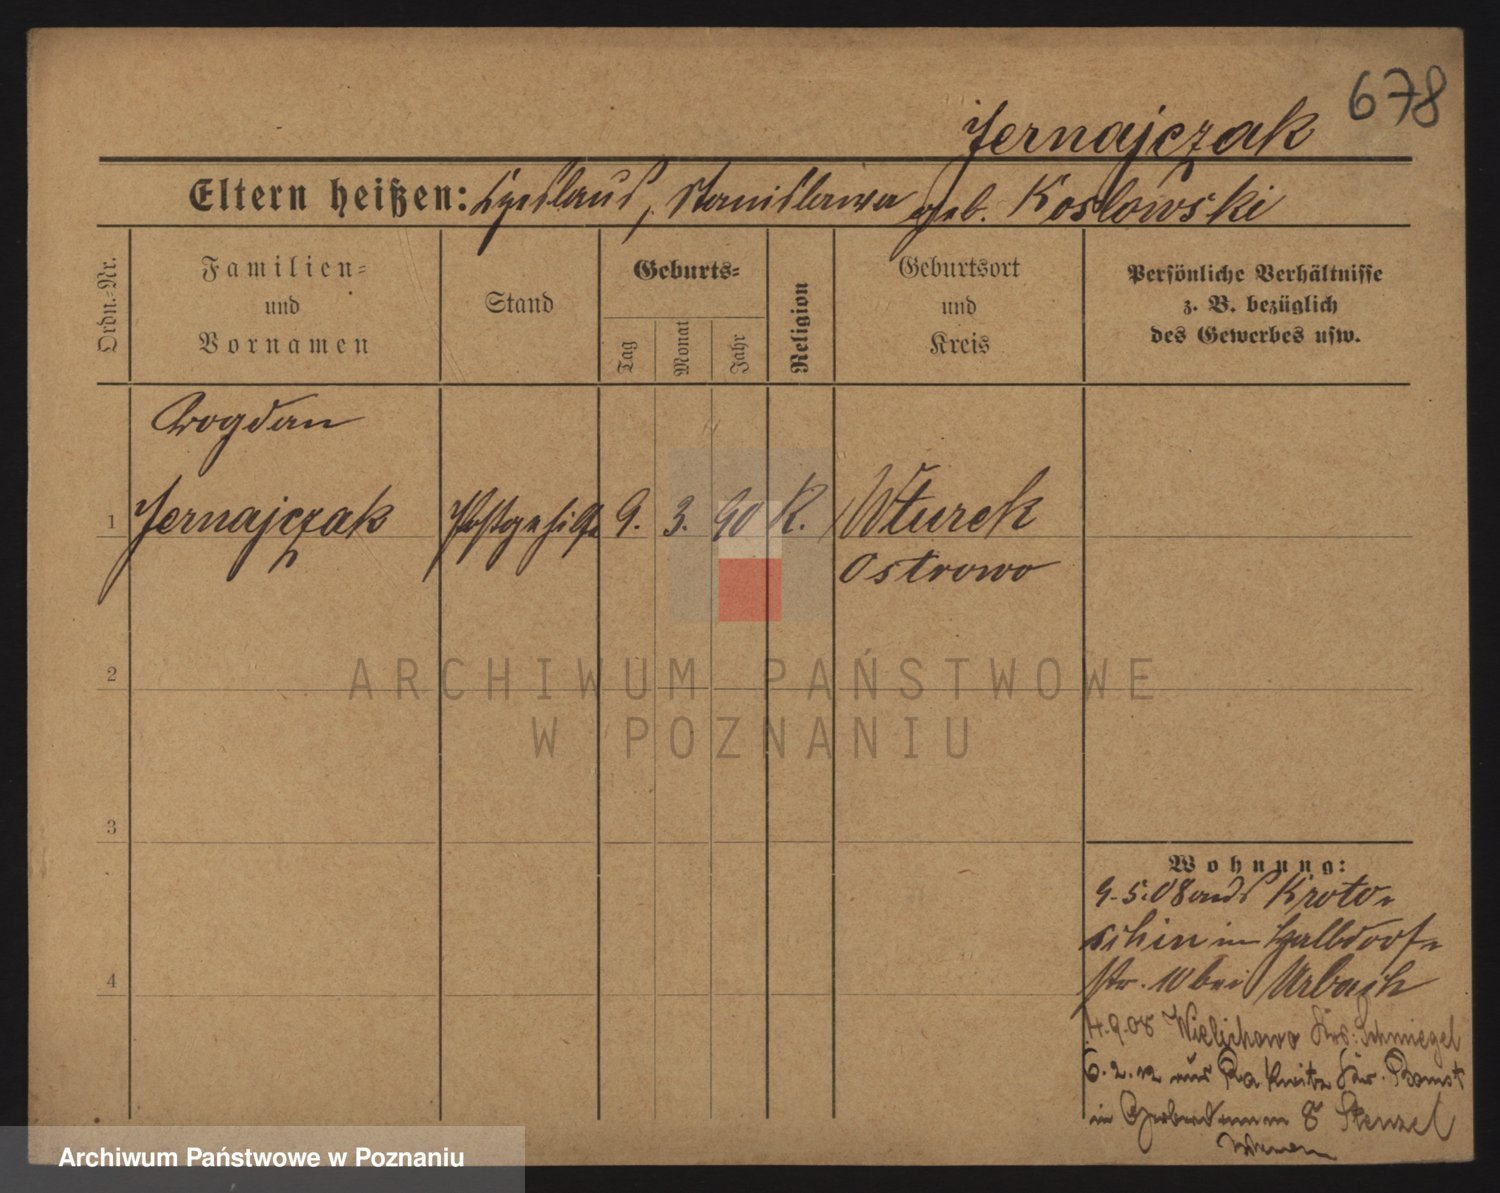 678
Jernajczak
Eltern heißen: Czeslaus, Stanislawa geb. Koslowski
Ordn.-Nr.
Familien-
und
Vornamen
Stand
Geburts-
Tag
Monat
Jahr
Religion
Geburtsort
und
Kreis
Persönliche Verhältnisse
z. B. bezüglich
des Gewerbes usw.
Bogdan
1 Jernajczak Postgehilfe 9. 3. 90 K. Wturek
Ostrowo
2
ARCHIWUM PAŃSTWOWE
W POZNANIU
3
4
Wohnung:
9.5.08 aus Kroto-
schin in Halbdorf-
str. 10 bei Urbach
4.9.08 Wielichowo Krs. Schmiegel
6.2.12 aus Rakwitz Kr. Bomst
in 8 Stenzel
Archiwum Państwowe w Poznaniu